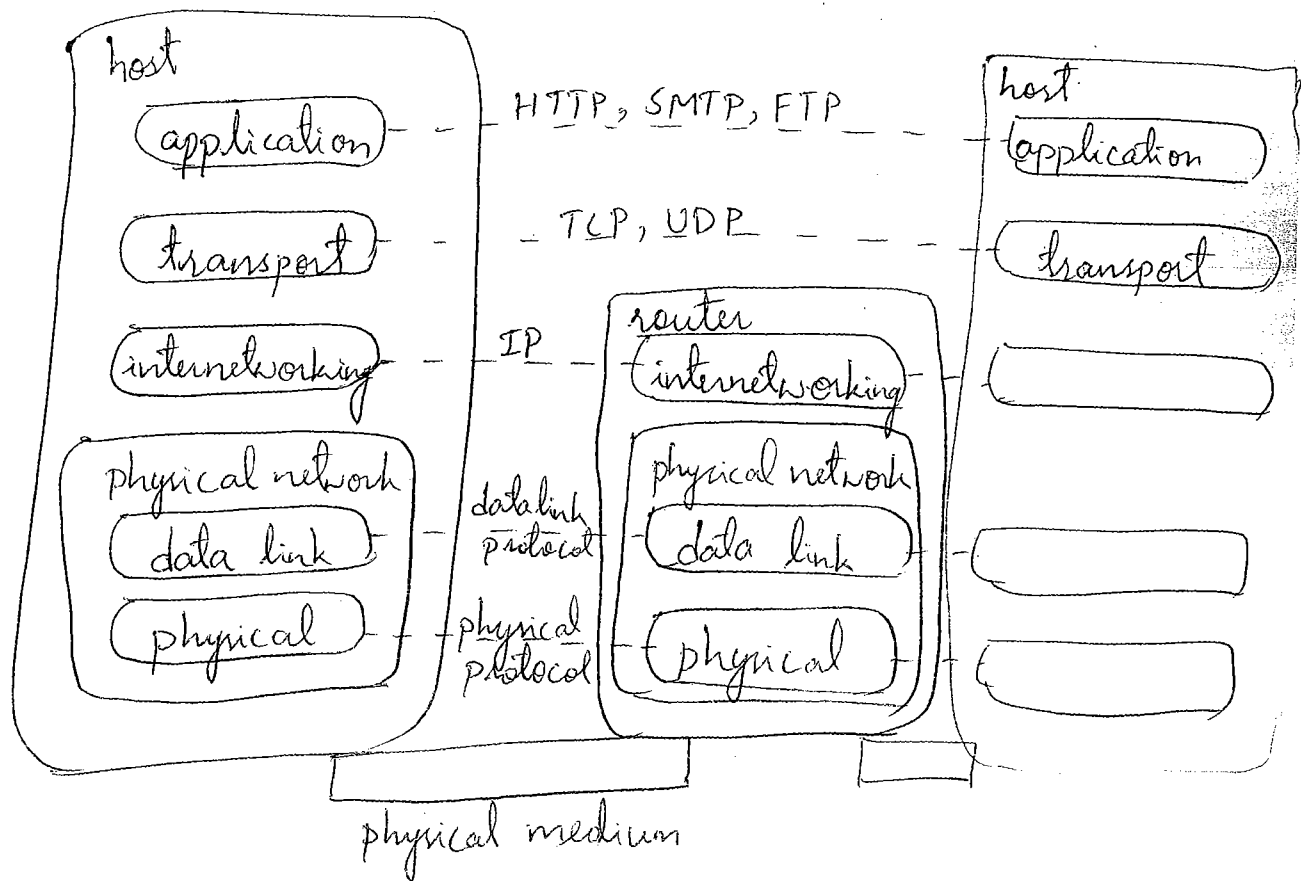 host
application
transport
internetworking
physical network
data link
physical
HTTP, SMTP, FTP
TCP, UDP
IP
data link
protocol
physical
protocol
router
internetworking
physical network
data link
physical
host
application
transport
physical medium